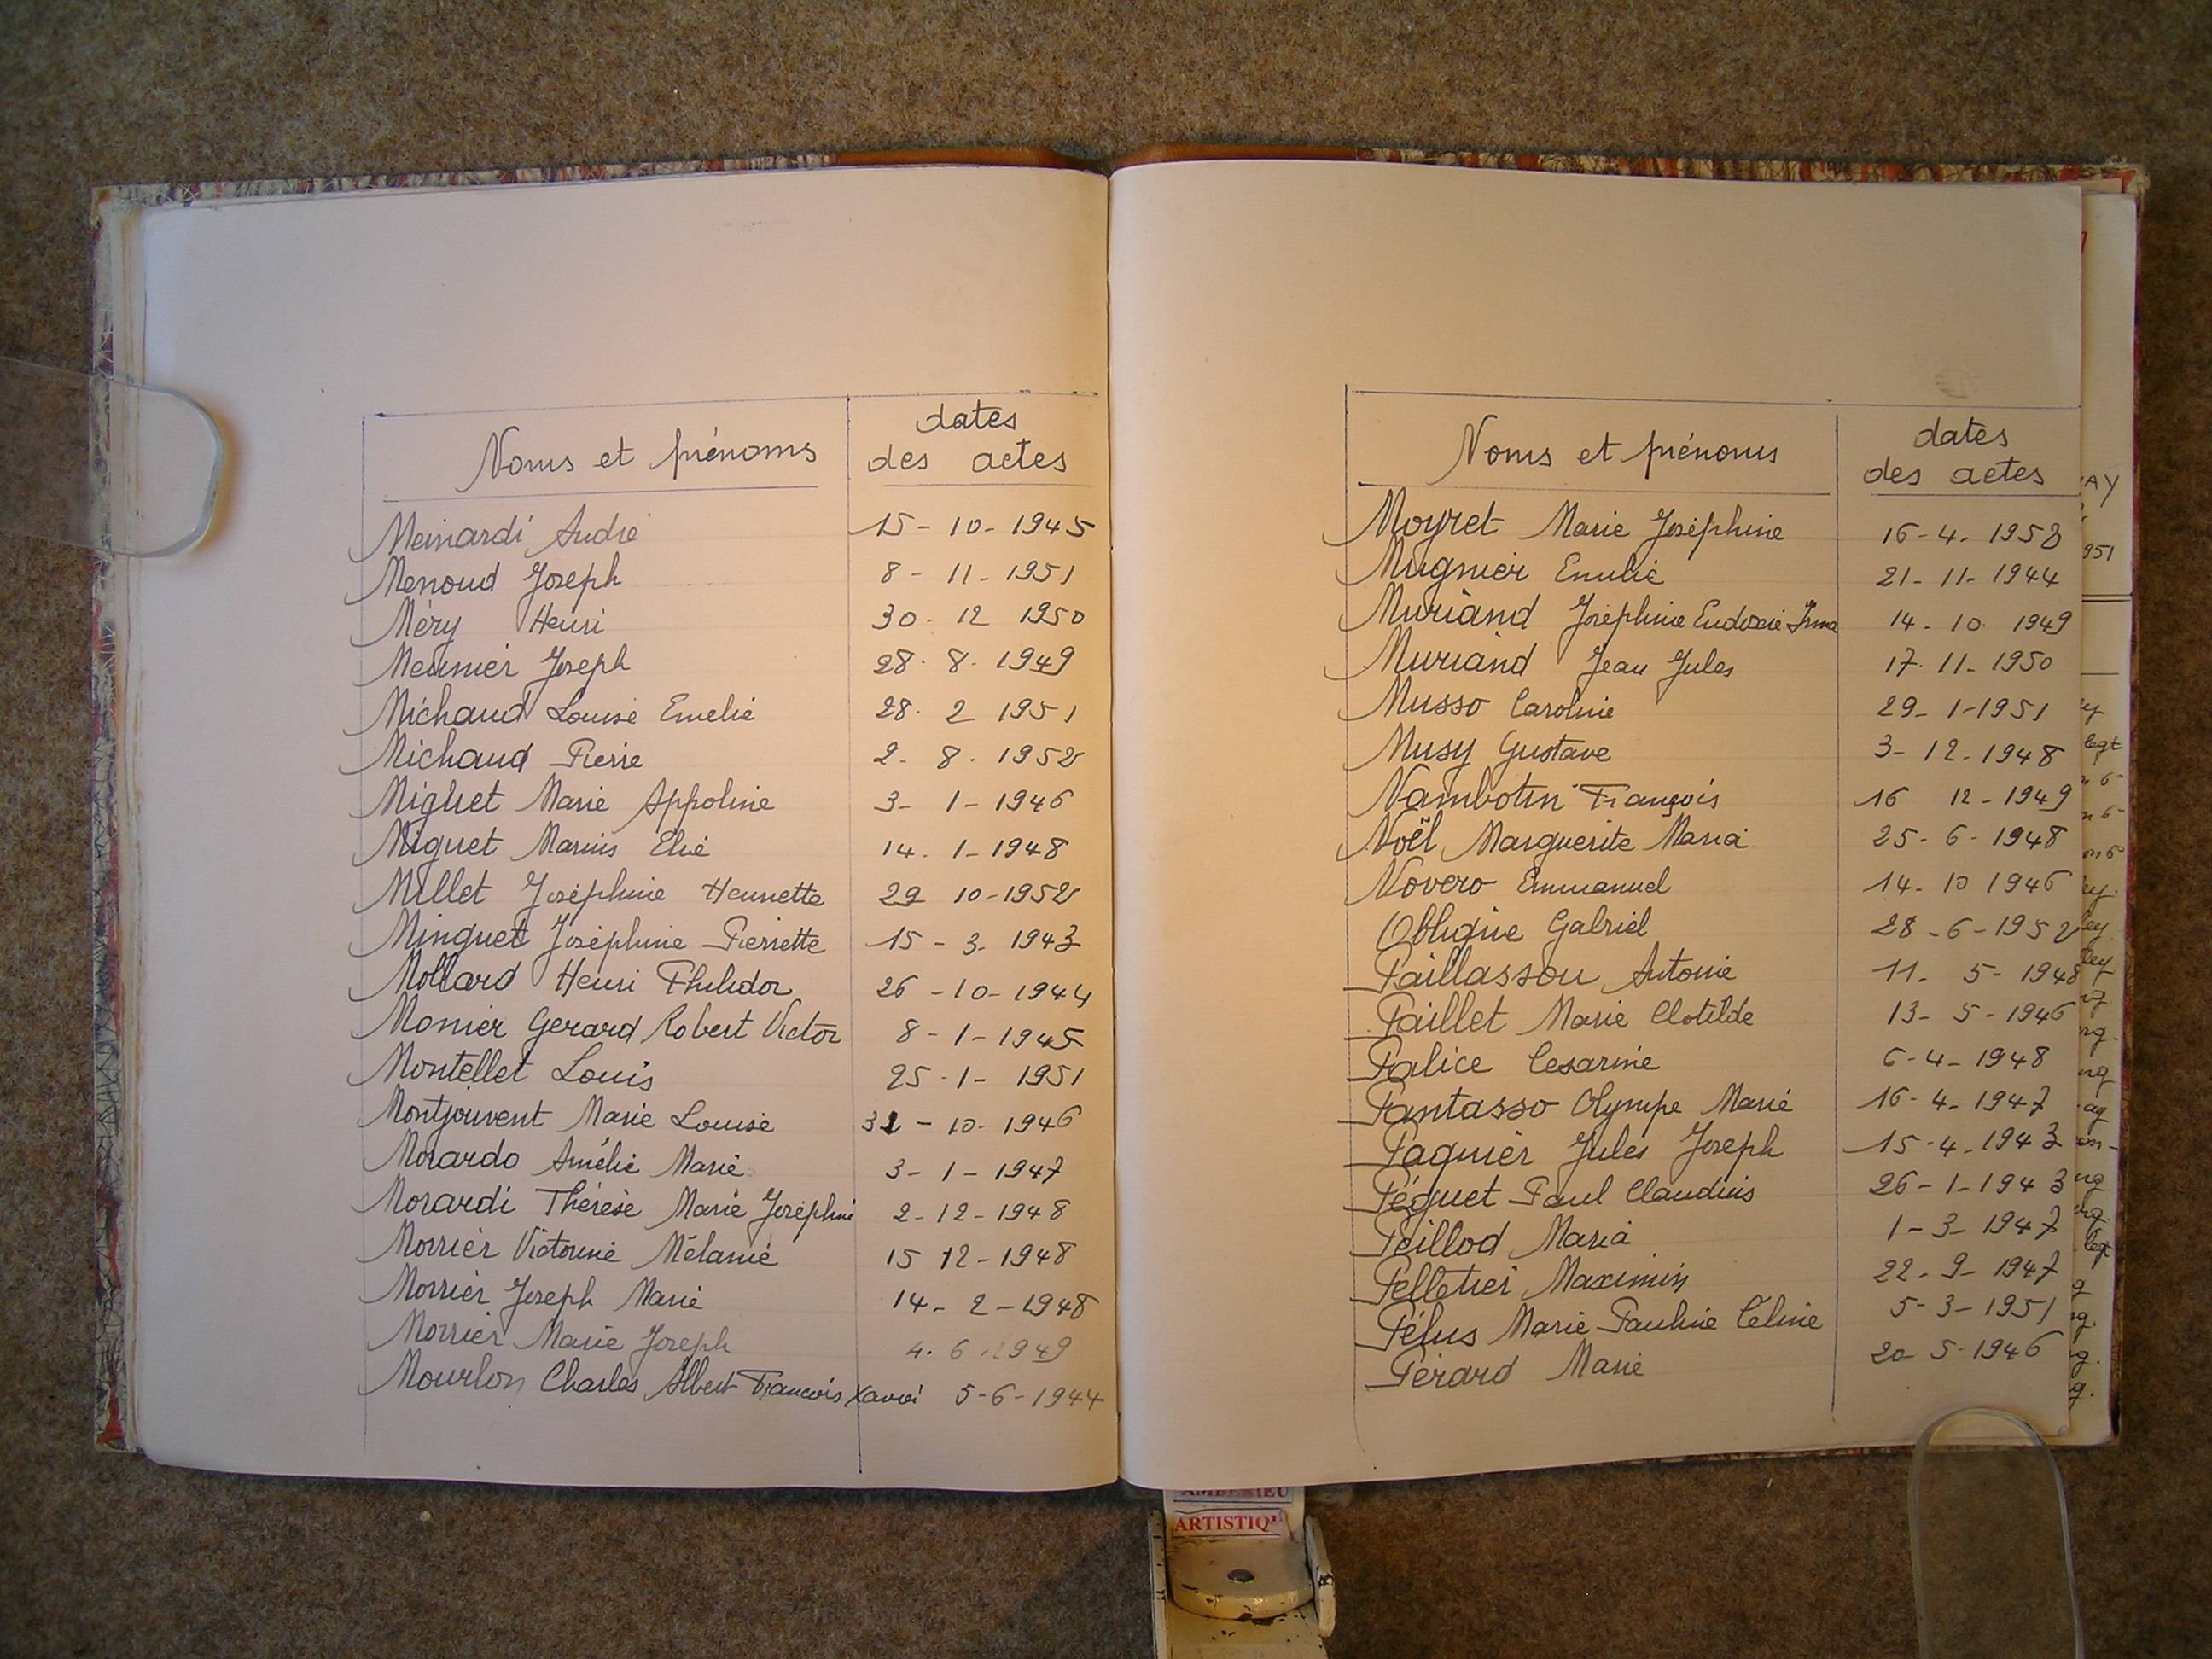 Noms et prénoms
dates
des actes
Meinardi André 15-10-1945
Menoud Joseph 8-11-1951
Méry Henri 30-12 1950
Meunier Joseph 28.8.1949
Michaud Louise Emelie 28.2 1951
Michaud Pierre 2-8.1952
Miguet Marie Appoline 3-1-1946
Miguet Marius Elie 14.1-1948
Millet Joséphine Henriette 29 10-1952
Minguet Joséphine Pierrette 15-3-1943
Mollard Henri Philidor 26-10-1944
Monier Gerard Robert Victor 8-1-1945
Montellet Louis 25-1-1951
Montjouvent Marie Louise 31-10-1946
Morardo Amélie Marie 3-1-1947
Morardi Thérèse Marie Joséphine 2-12-1948
Morrier Victorine Mélanie 15 12-1948
Morrier Joseph Marie 14-2-1948
Morrier Marie Joseph 4.6.1949
Mourlon Charles Albert Francois Xavier 5-6-1944
Noms et prénoms
dates
des actes
Moyret Marie Joséphine 16-4-1952
Mugnier Emilie 21-11-1944
Muriand Joséphine Eudoxie Irma 14-10 1949
Muriand Jean Jules 17.11-1950
Musso Caroline 29-1-1951
Musy Gustave 3-12-1948
Nambotin François 16 12-1949
Noël Marguerite Maria 25-6-1948
Novero Emmanuel 14-10 1946
Oblique Gabriel 28-6-1952
Paillasson Antonie 11-5-1948
Paillet Marie Clotilde 13-5-1946
Palice Cesarine 6-4-1948
Pantasso Olympe Marie 16-4-1947
Paquier Jules Joseph 15-4-1943
Péguet Paul Claudius 26-1-1943
Peillod Maria 1-3-1947
Pelletier Maximin 22-9-1947
Pélus Marie Pauline Céline 5-3-1951
Pérard Marie 20-5-1946
AY
951
legt
ARTISTIQ